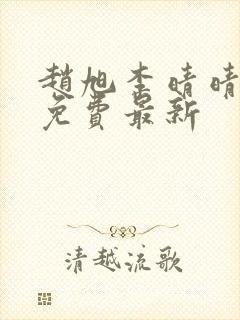 趙旭李晴晴
免費最新
清越流歌